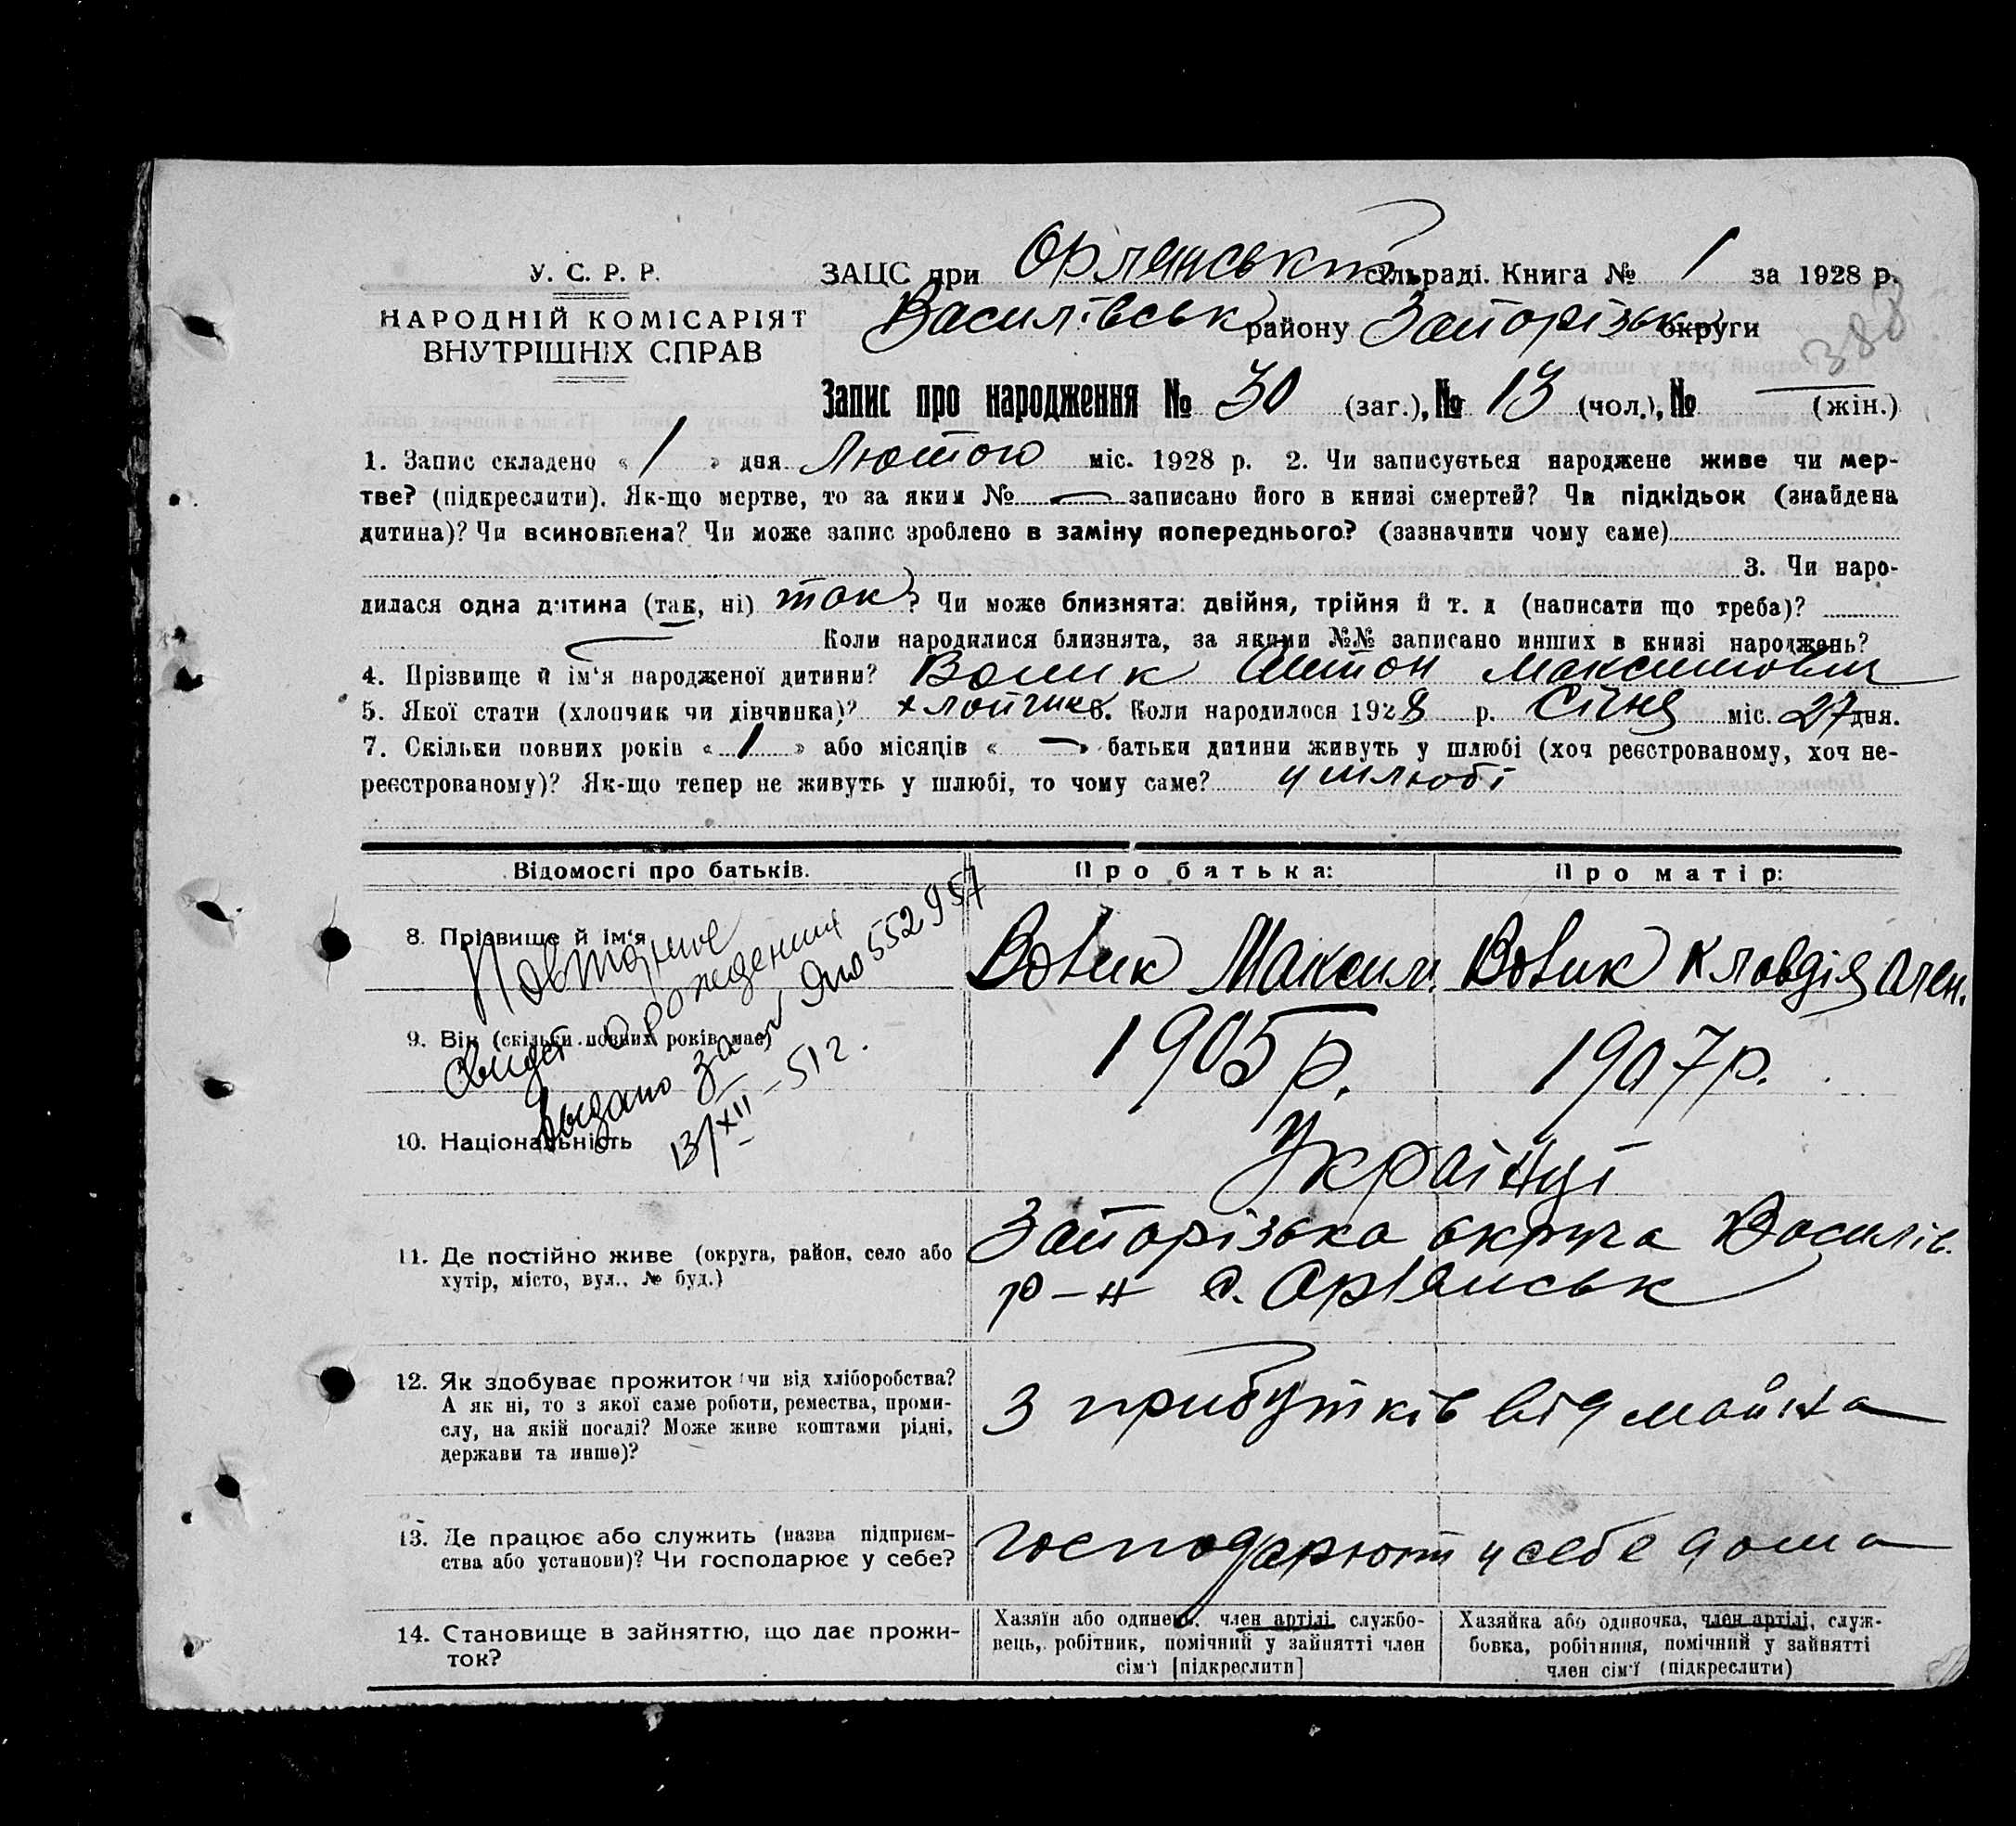 У. С. Р. Р.
НАРОДНІЙ КОМІСАРІЯТ
ВНУТРІШНІХ СПРАВ
ЗАЦС при Орлянській сільраді. Книга № 1 за 1928 р.
Василівськ району Запорізьк округи
388
Запис про народження № 30 (заг.), № 13 (чол.), № — (жін.)
1. Запис складено « 1 » дня Лютого міс. 1928 р. 2. Чи записується народжене живе чи мер-
тве? (підкреслити). Як-що мертве, то за яким № — записано його в книзі смертей? Чи підкідьок (знайдена
дитина)? Чи всиновлена? Чи може запис зроблено в заміну попереднього? (зазначити чому саме)
3. Чи наро-
дилася одна дитина (так, ні) так ? Чи може близнята: двійня, трійня й т. д (написати що треба)?
— Коли народилися близнята, за якими №№ записано инших в книзі народжень?
4. Прізвище й ім‘я народженої дитини? Вовик Антон Максимович
5. Якої стати (хлопчик чи дівчинка)? хлопчик 6. Коли народилося 1928 р. Січня міс. 27 дня.
7. Скільки повних років « 1 » або місяців « — » батьки дитини живуть у шлюбі (хоч реєстрованому, хоч не-
реєстрованому)? Як-що тепер не живуть у шлюбі, то чому саме? у шлюбі
Відомості про батьків. Про батька: Про матір:
8. Прізвище й ім‘я Вовик Максим. Вовик Клавдія
9. Вік (скільки повних років має) 1905 р. 1907 р.
10. Національність Українці
Повторное
свидет о рождении
выдано за № 552957
13/XII - 51 г.
11. Де постійно живе (округа, район, село або
хутір, місто, вул., № буд.)
Запорізька округа Василів.
р-н с. Орлянськ
12. Як здобуває прожиток чи від хліборобства?
А як ні, то з якої саме роботи, ремества, проми-
слу, на якій посаді? Може живе коштами рідні,
держави та инше)?
З прибутків від майна
13. Де працює або служить (назва підприєм-
ства або установи)? Чи господарює у себе?
господарюют у себе дома
14. Становище в зайняттю, що дає прожи-
ток?
Хазяїн або одинець, член артілі, службо-
вець, робітник, помічний у зайнятті член
сім‘ї [підкреслити]
Хазяйка або одиночка, член артілі, служ-
бовка, робітниця, помічний у зайнятті
член сім‘ї (підкреслити)